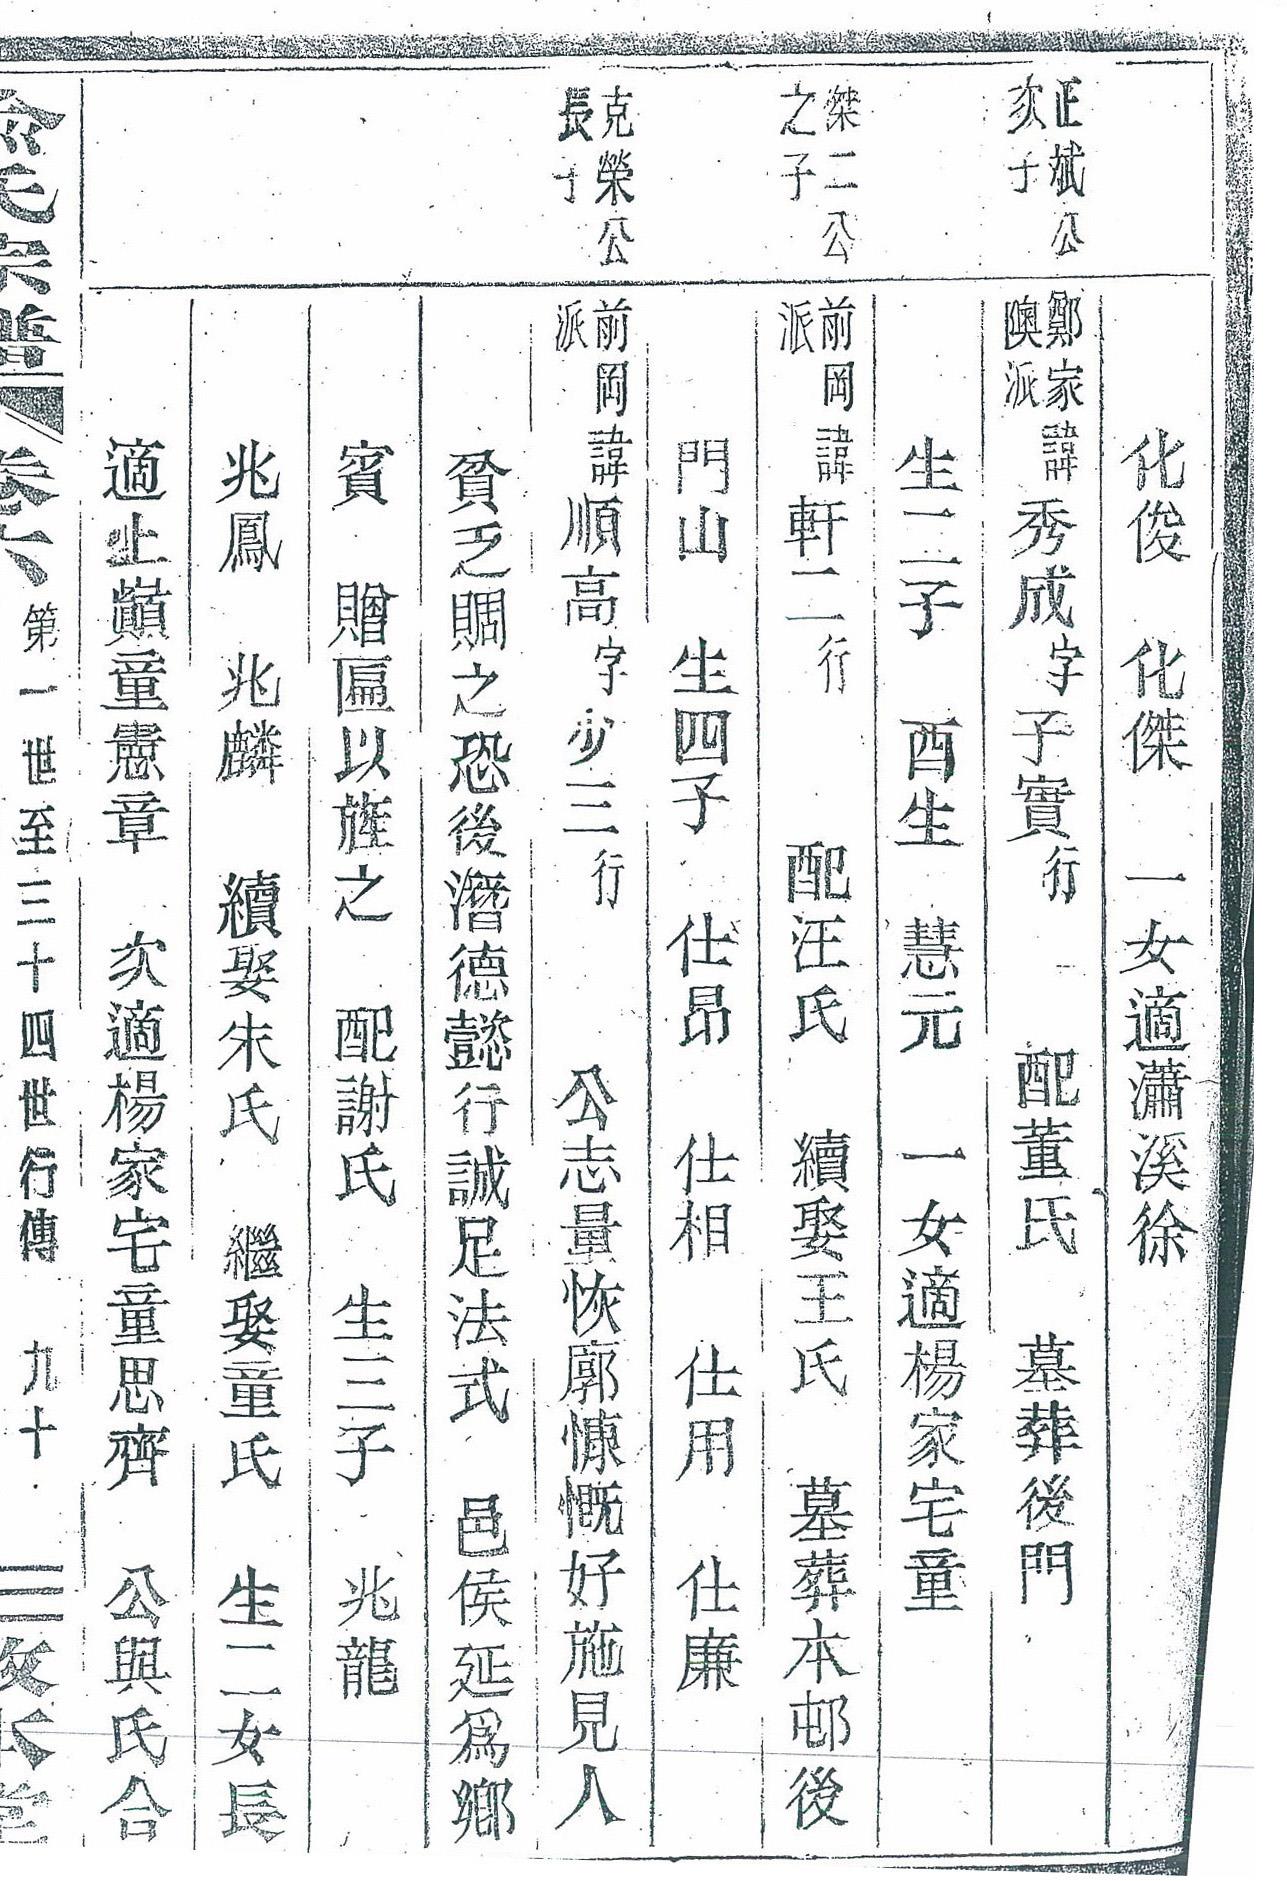 化俊　化傑　一女適瀟溪徐
正斌公次子
鄭家隩派諱秀成字子實行　配董氏　墓葬後門
生二子　酉生　慧元　一女適楊家宅童
傑二公之子
前岡派諱軒二行　配汪氏　續娶王氏　墓葬本邨後
門山　生四子　仕昂　仕相　仕用　仕廉
克榮公長子
前岡派諱順高字少三行　公志量恢廓慷慨好施見人
貧乏賙之恐後潛德懿行誠足法式　邑侯延爲鄉
賓　贈匾以旌之　配謝氏　生三子　兆龍
兆鳳　兆麟　續娶朱氏　繼娶童氏　生二女長
適止巔童憲章　次適楊家宅童思齊　公與氏合
俞氏宗譜　卷六　第一世至三十四世行傳　九十　三